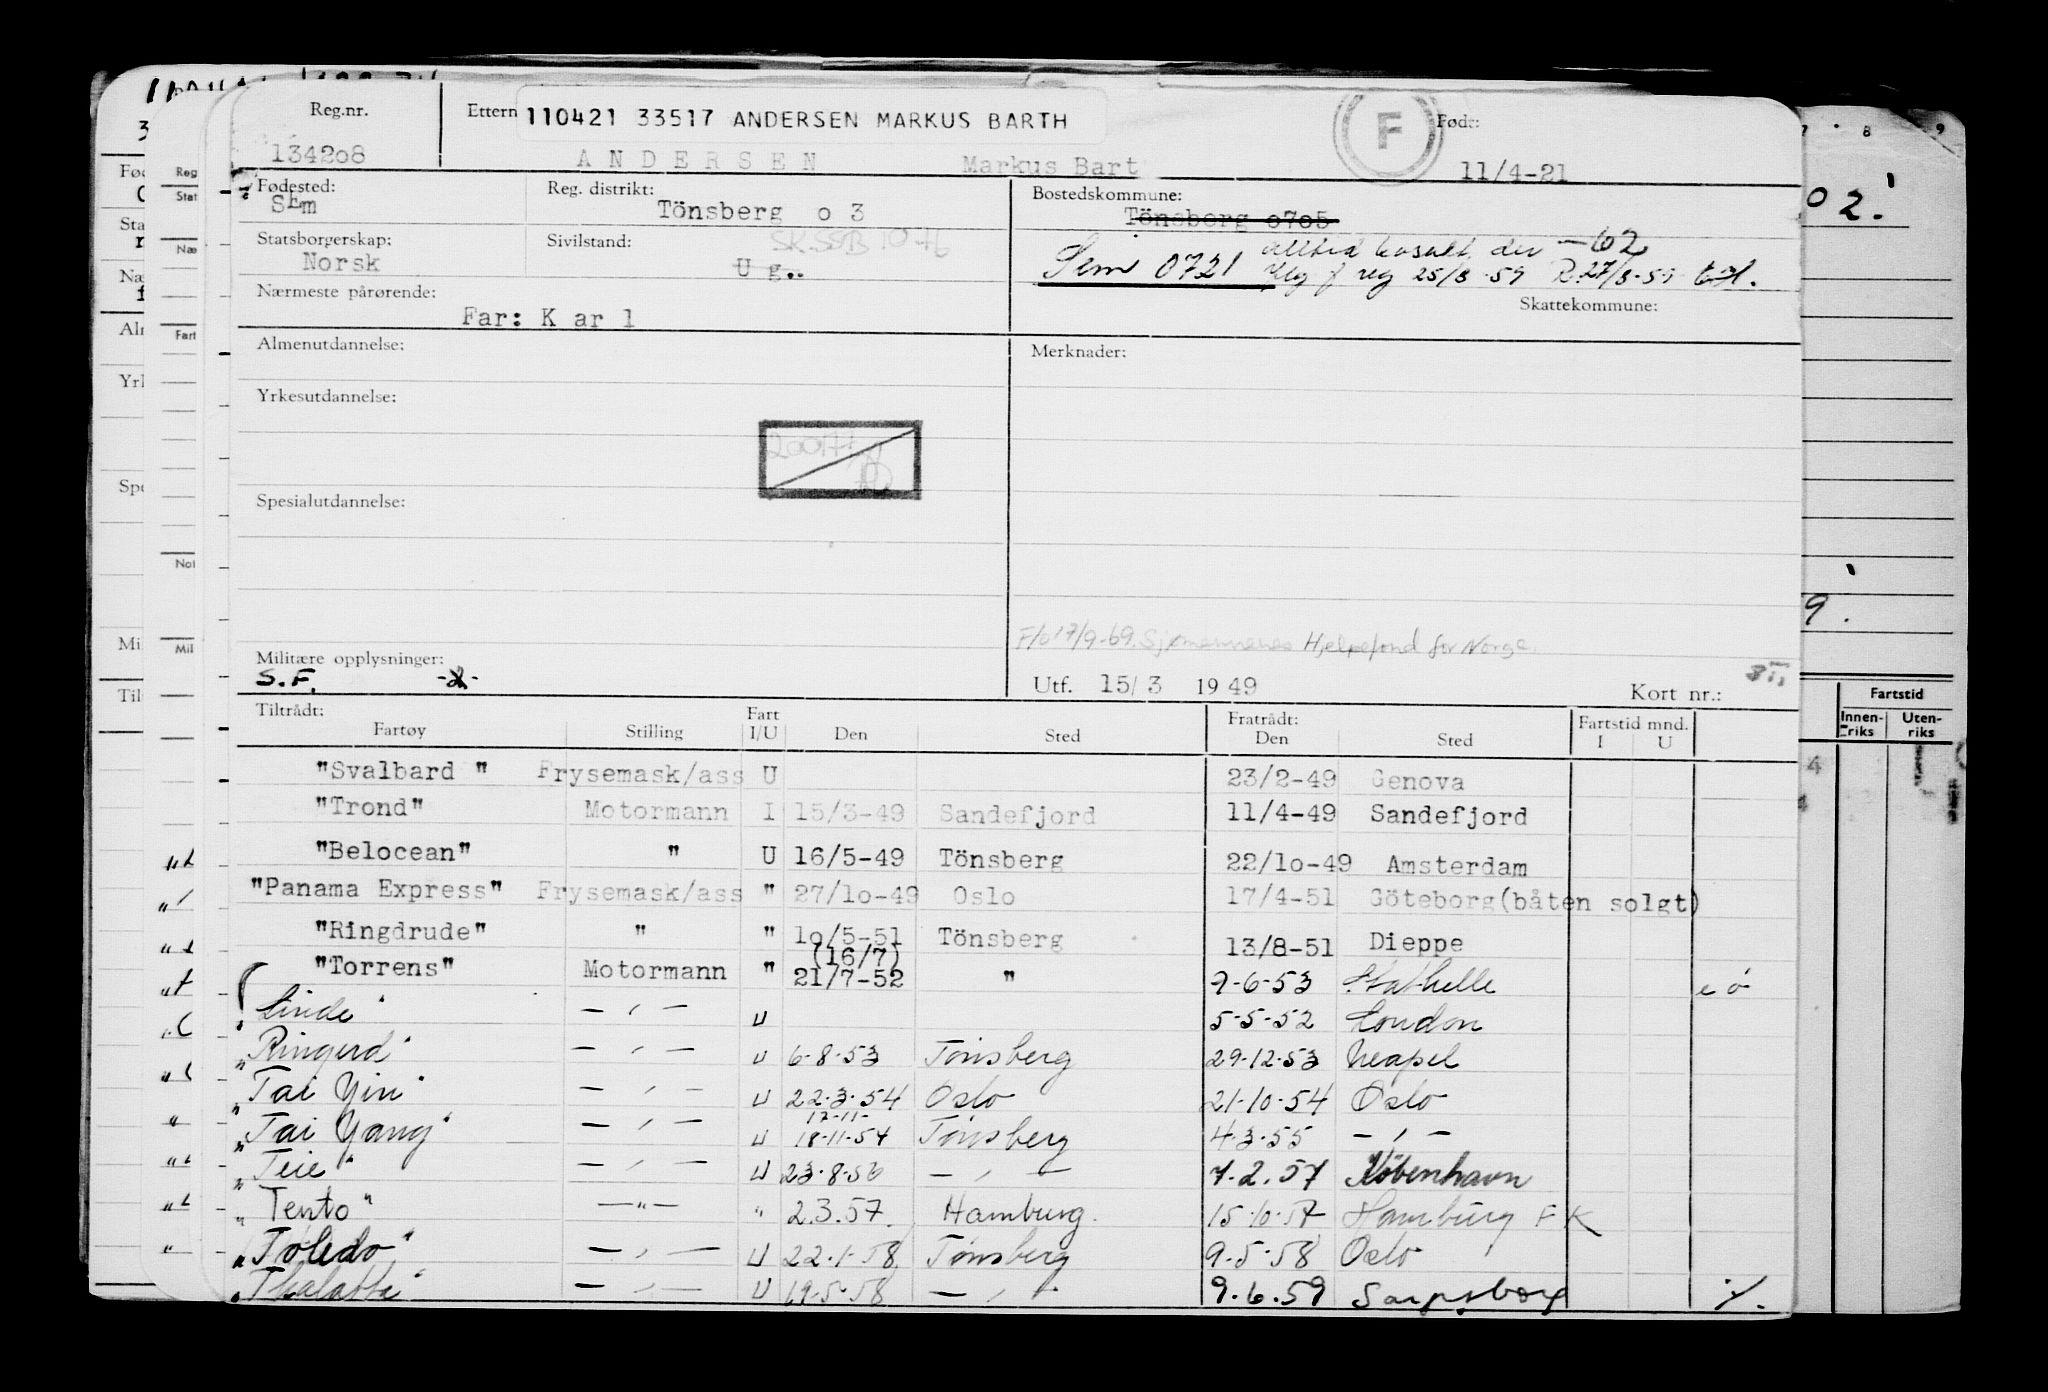 Reg.nr. Ettern 110421 33517 ANDERSEN MARKUS BARTH F Født:
134208 ANDERSEN Markus Bart 11/4-21
Fødested: Reg. distrikt: Bostedskommune:
Sem Tönsberg o 3 Tönsberg o7o5
Statsborgerskap: Sivilstand: SK.SSB 10-76 alltid bosatt der -62
Norsk U g.. Sem 0721 25/8-59 R.27/8-59
Nærmeste pårørende: Skattekommune:
Far: K ar l
Almenutdannelse: Merknader:
Yrkesutdannelse:
Spesialutdannelse:
F/o 17/9-69. Sjømennenes Hjelpefond for Norge.
Militære opplysninger:
S.F. -2- Utf. 15/3 1949 Kort nr.:
Tiltrådt: Fart Fratrådt: Fartstid mnd.
Fartøy Stilling I/U Den Sted Den Sted I U
"Svalbard " Frysemask/ass U 23/2-49 Genova
"Trond" Motormann I 15/3-49 Sandefjord 11/4-49 Sandefjord
"Belocean" " U 16/5-49 Tönsberg 22/1o-49 Amsterdam
"Panama Express" Frysemask/ass " 27/1o-49 Oslo 17/4-51 Göteborg(båten solgt)
"Ringdrude" " " 1o/5-51 Tönsberg 13/8-51 Dieppe
(16/7)
"Torrens" Motormann " 21/7-52 " 9-6-53 Stathelle
"Linde" - " - U 5-5-52 London
"Ringerd" - " - U 6-8-53 Tönsberg 29-12-53 Neapel
"Tai Yin" - " - U 22-3-54 Oslo 21-10-54 Oslo
17-11-
"Tai Yang" - " - U 18-11-54 Tönsberg 4-3-55 - " -
"Teie" - " - U 23-8-56 - " - 7.2.57 København
"Tento" - " - " 2.3.57. Hamburg. 15-10-57 Hamburg F K
"Toledo" - " - U 22-1-58 Tönsberg 9-5-58 Oslo
"Thalatta" - " - U 19-5-58 - " - 9.6.59 Sarpsborg
Fartstid
Innenriks Utenriks